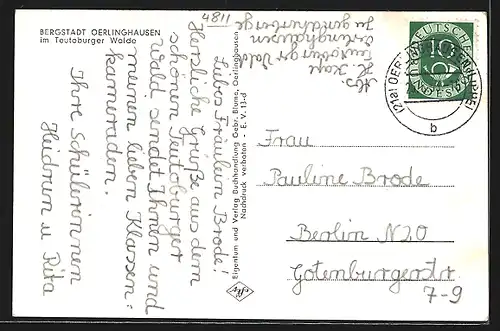 BERGSTADT OERLINGHAUSEN
im Teutoburger Walde
4811
Liebes Fräulein Brode!
Herzliche Grüße aus dem
schönen Teutoburger
Wald sendet Ihnen und
meinen lieben Klassen=
kameraden.
Ihre Schülerinnen
Heidrun u Rita
Abs
H. Kar
Teutoburger Walde
Oerlinghausen
Jugendherberge
Eigentum und Verlag Buchhandlung Gebr. Blume, Oerlinghausen
Nachdruck verboten - E. V. 13-d
DEUTSCHE
10
(21a) OERLINGHAUSEN
b
Frau
Pauline Brode
Berlin N20
Gotenburgerstr
7-9